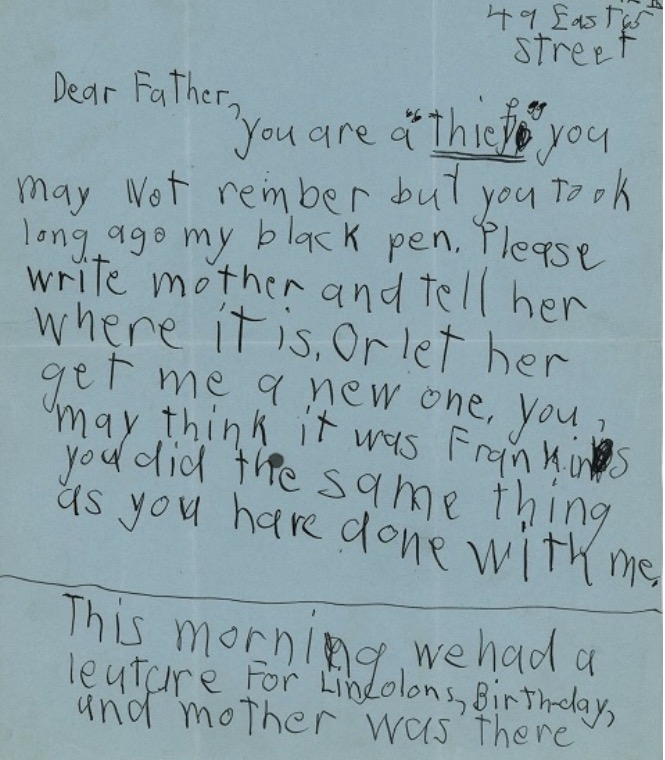 49 East 65
Street
Dear Father,
you are a "thief" you
may not rember but you took
long ago my black pen. Please
write mother and tell her
where it is, Or let her
get me a new one, you,
may think it was Frankins
you did the same thing
as you have done with me.
This morning we had a
leuture For Lincolons, Birth-day,
and mother was there